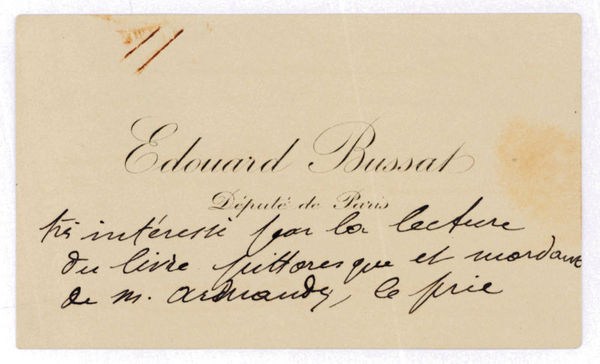 Edouard Bussat
Député de Paris
très intéressé par la lecture
du livre pittoresque et mordant
de M. Armandy, le prie